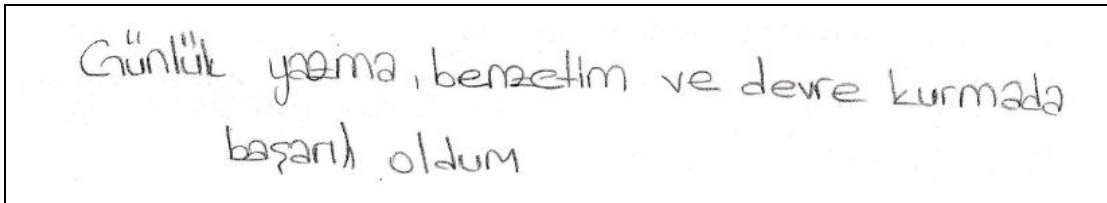 Günlük yazma, benzetim ve devre kurmada
başarılı oldum